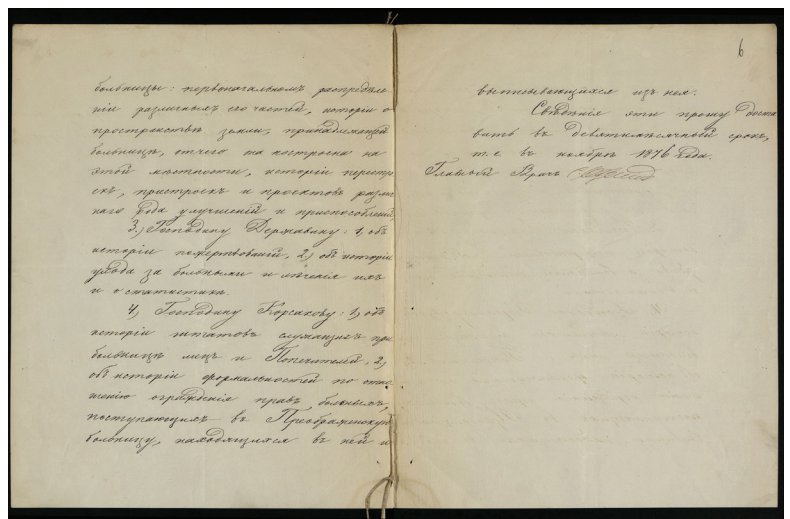 больницы: первоначальномъ распредѣле
нiи различныхъ его частей, исторiи о
пространствѣ земли, принадлежащей
больницѣ, отчего та построена на
этой мѣстности, исторiи перестро
екъ, пристроекъ и проектовъ различ
наго рода улучшенiй и приспособленiй.
3,) Господину Державину: 1, объ
исторiи пожертвованiй, 2,) объ исторiи
ухода за больными и лѣченiя ихъ
и о статистикѣ.
4,) Господину Корсакову: 1,) объ
исторiи штатовъ служащихъ при
больницѣ лицъ и Попечителей, 2,)
объ исторiи формальностей по отно
шенiю огражденiя правъ больныхъ,
поступающихъ въ Преображенскую
больницу, находящихся въ ней и
6
выписывающихся изъ нея.
Свѣдѣнiя эти прошу доста
вить въ девятимѣсячный срокъ,
т. е. въ ноябрѣ 1876 года.
Главный Врачъ